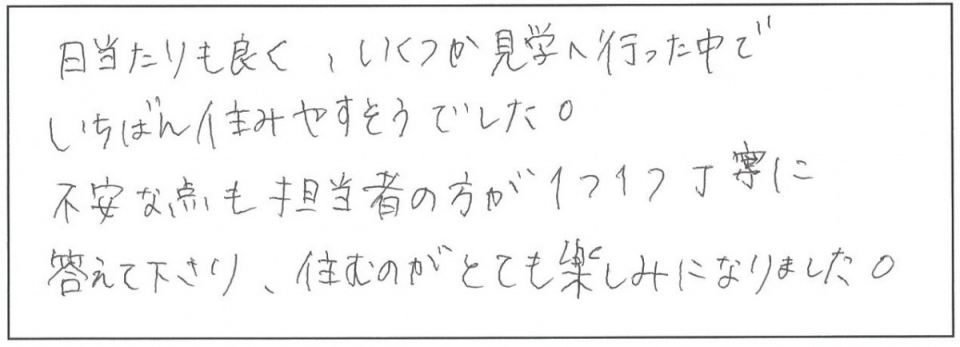 日当たりも良く、いくつか見学へ行った中で
いちばん住みやすそうでした。
不安な点も担当者の方が1つ1つ丁寧に
答えて下さり、住むのがとても楽しみになりました。